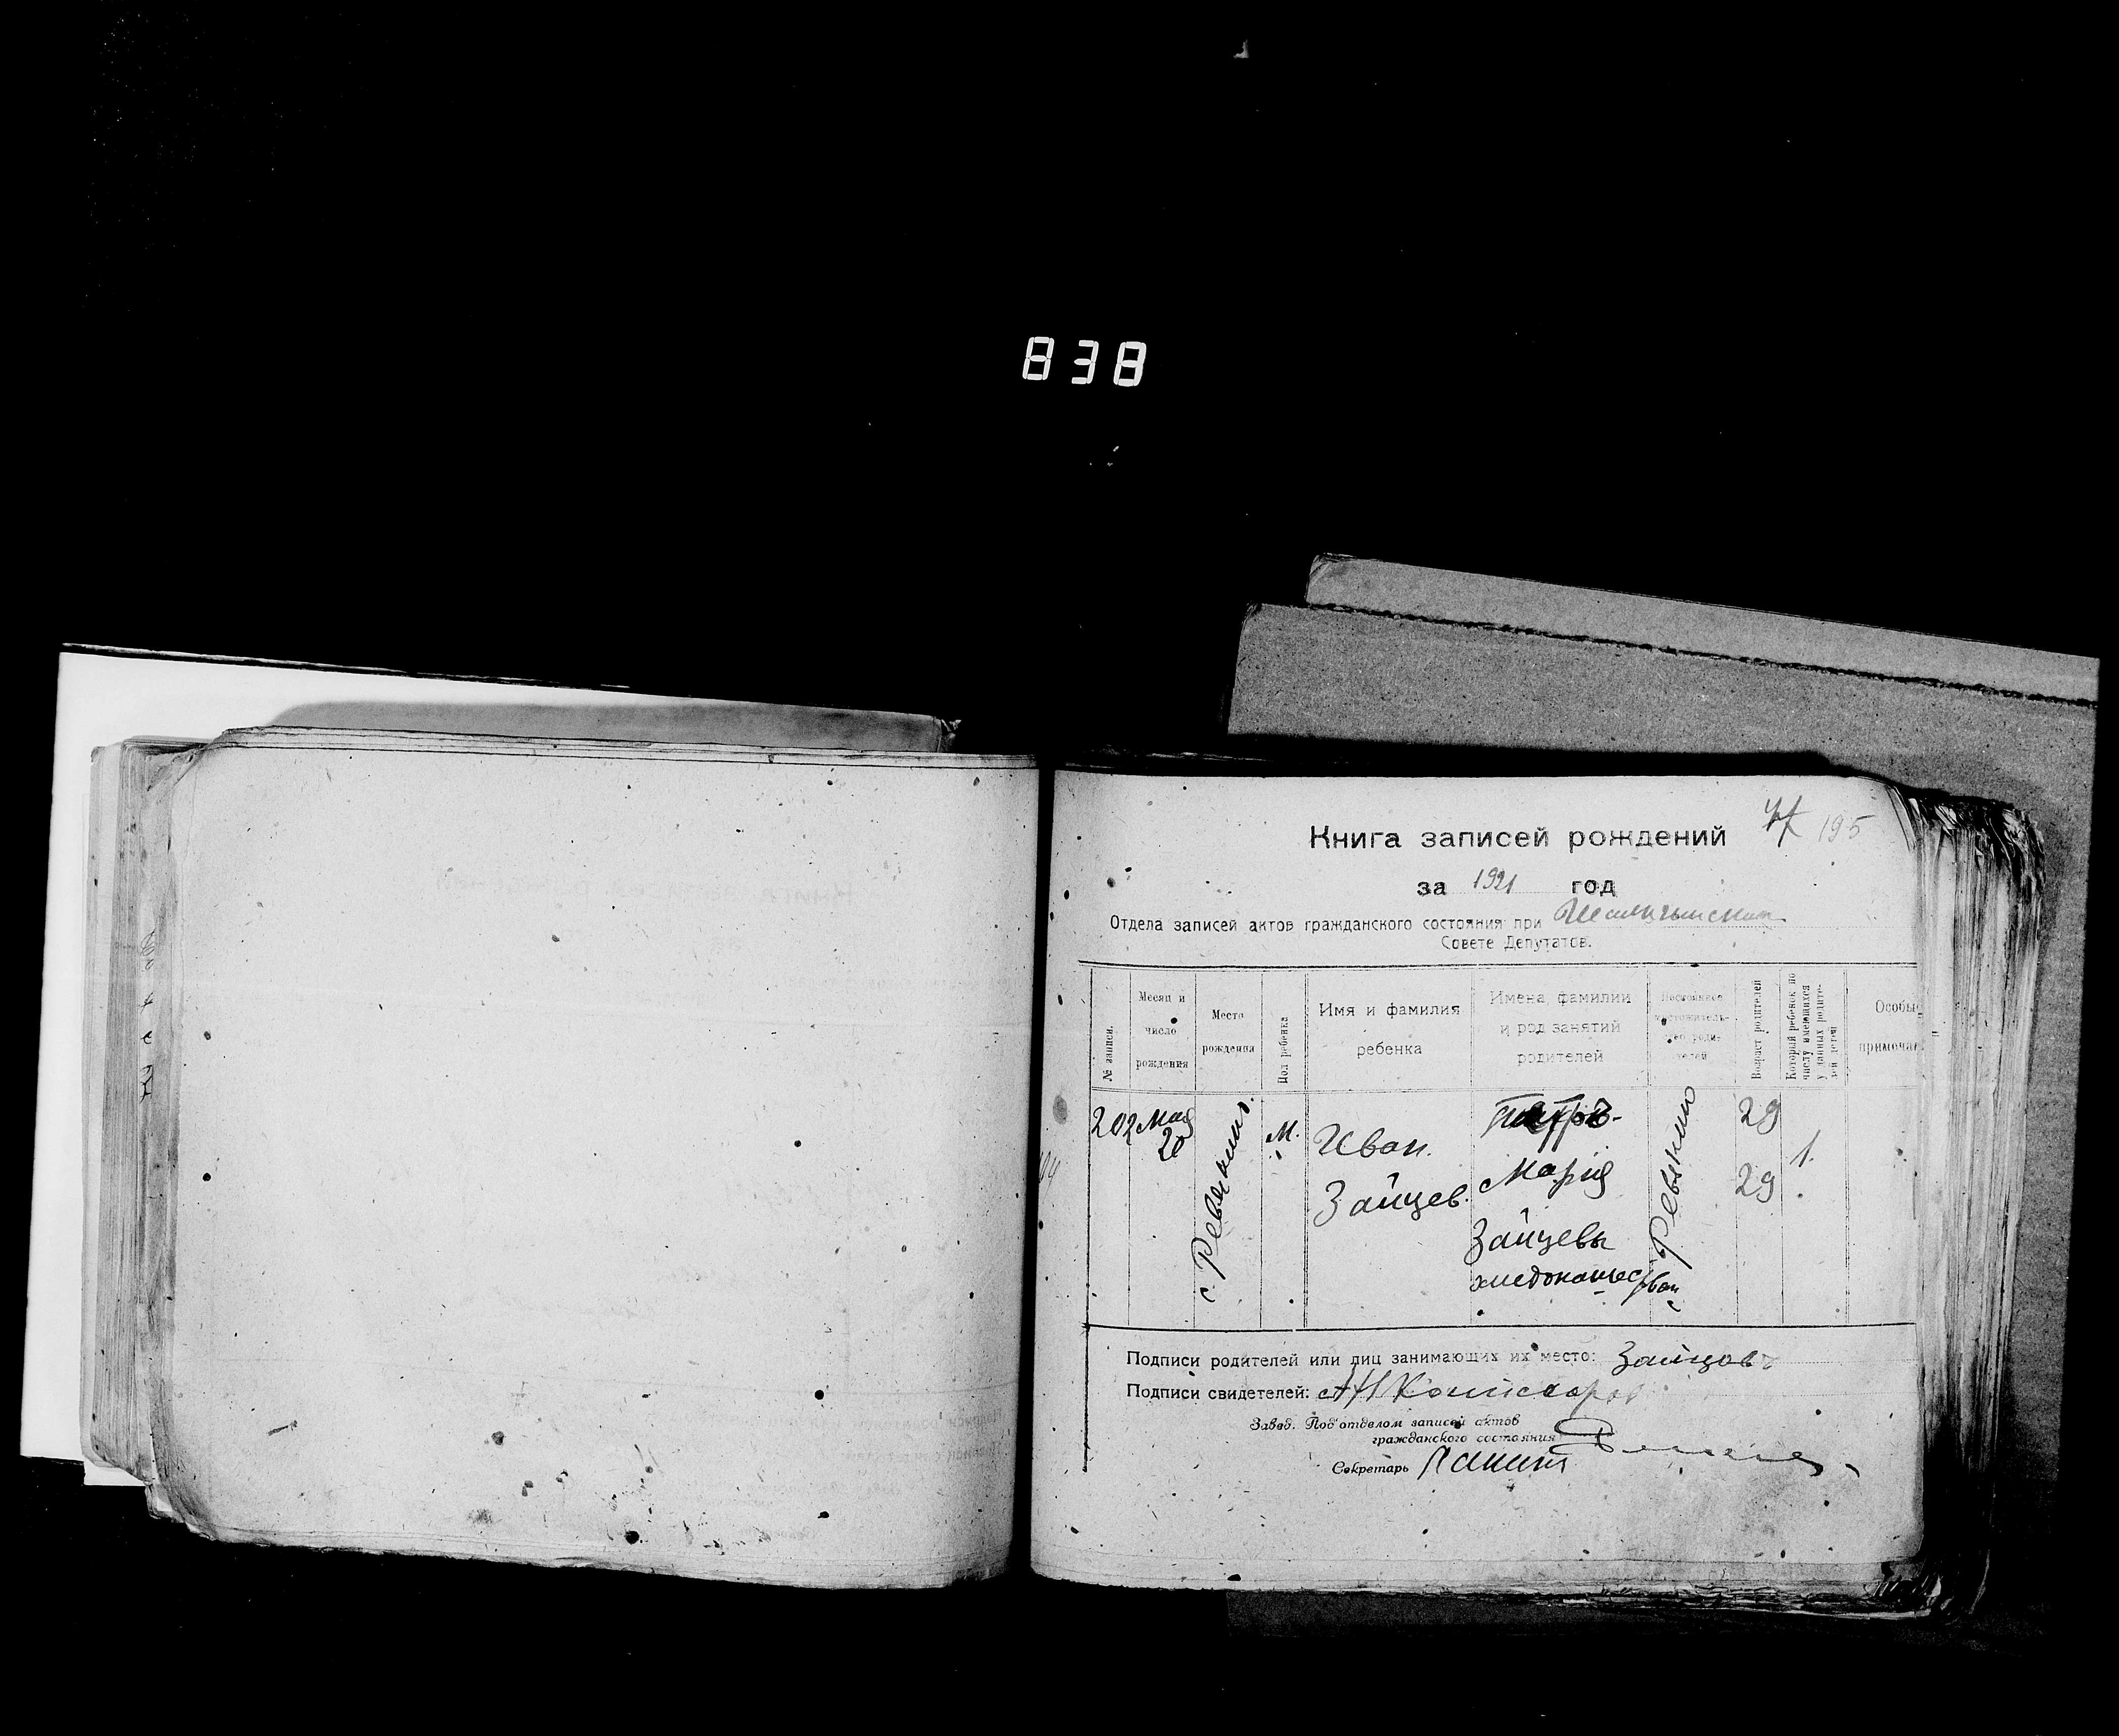 838
195
Книга записей рождений
за 1921 год
Отдела записей актов гражданского состояния при
Совете Депутатов.
№ записи.
Месяц и число рождения
Место рождения
Пол ребенка
Имя и фамилия ребенка
Имена, фамилии и род занятий родителей
Постоянное местожительство родителей
Возраст родителей
Который ребенок по числу имеющихся у данных родителей детей
Особы
примечан
202
Мая 20
с. Ревякино.
М.
Иван.
Зайцев.
Петръ
Мария
Зайцевы
хлебопашество
Ревякино
29
29
1.
Подписи родителей или лиц занимающих их место: Зайцовъ
Подписи свидетелей: Комисаров
Завед. Под'отделом записей актов
гражданского состояния
Секретарь